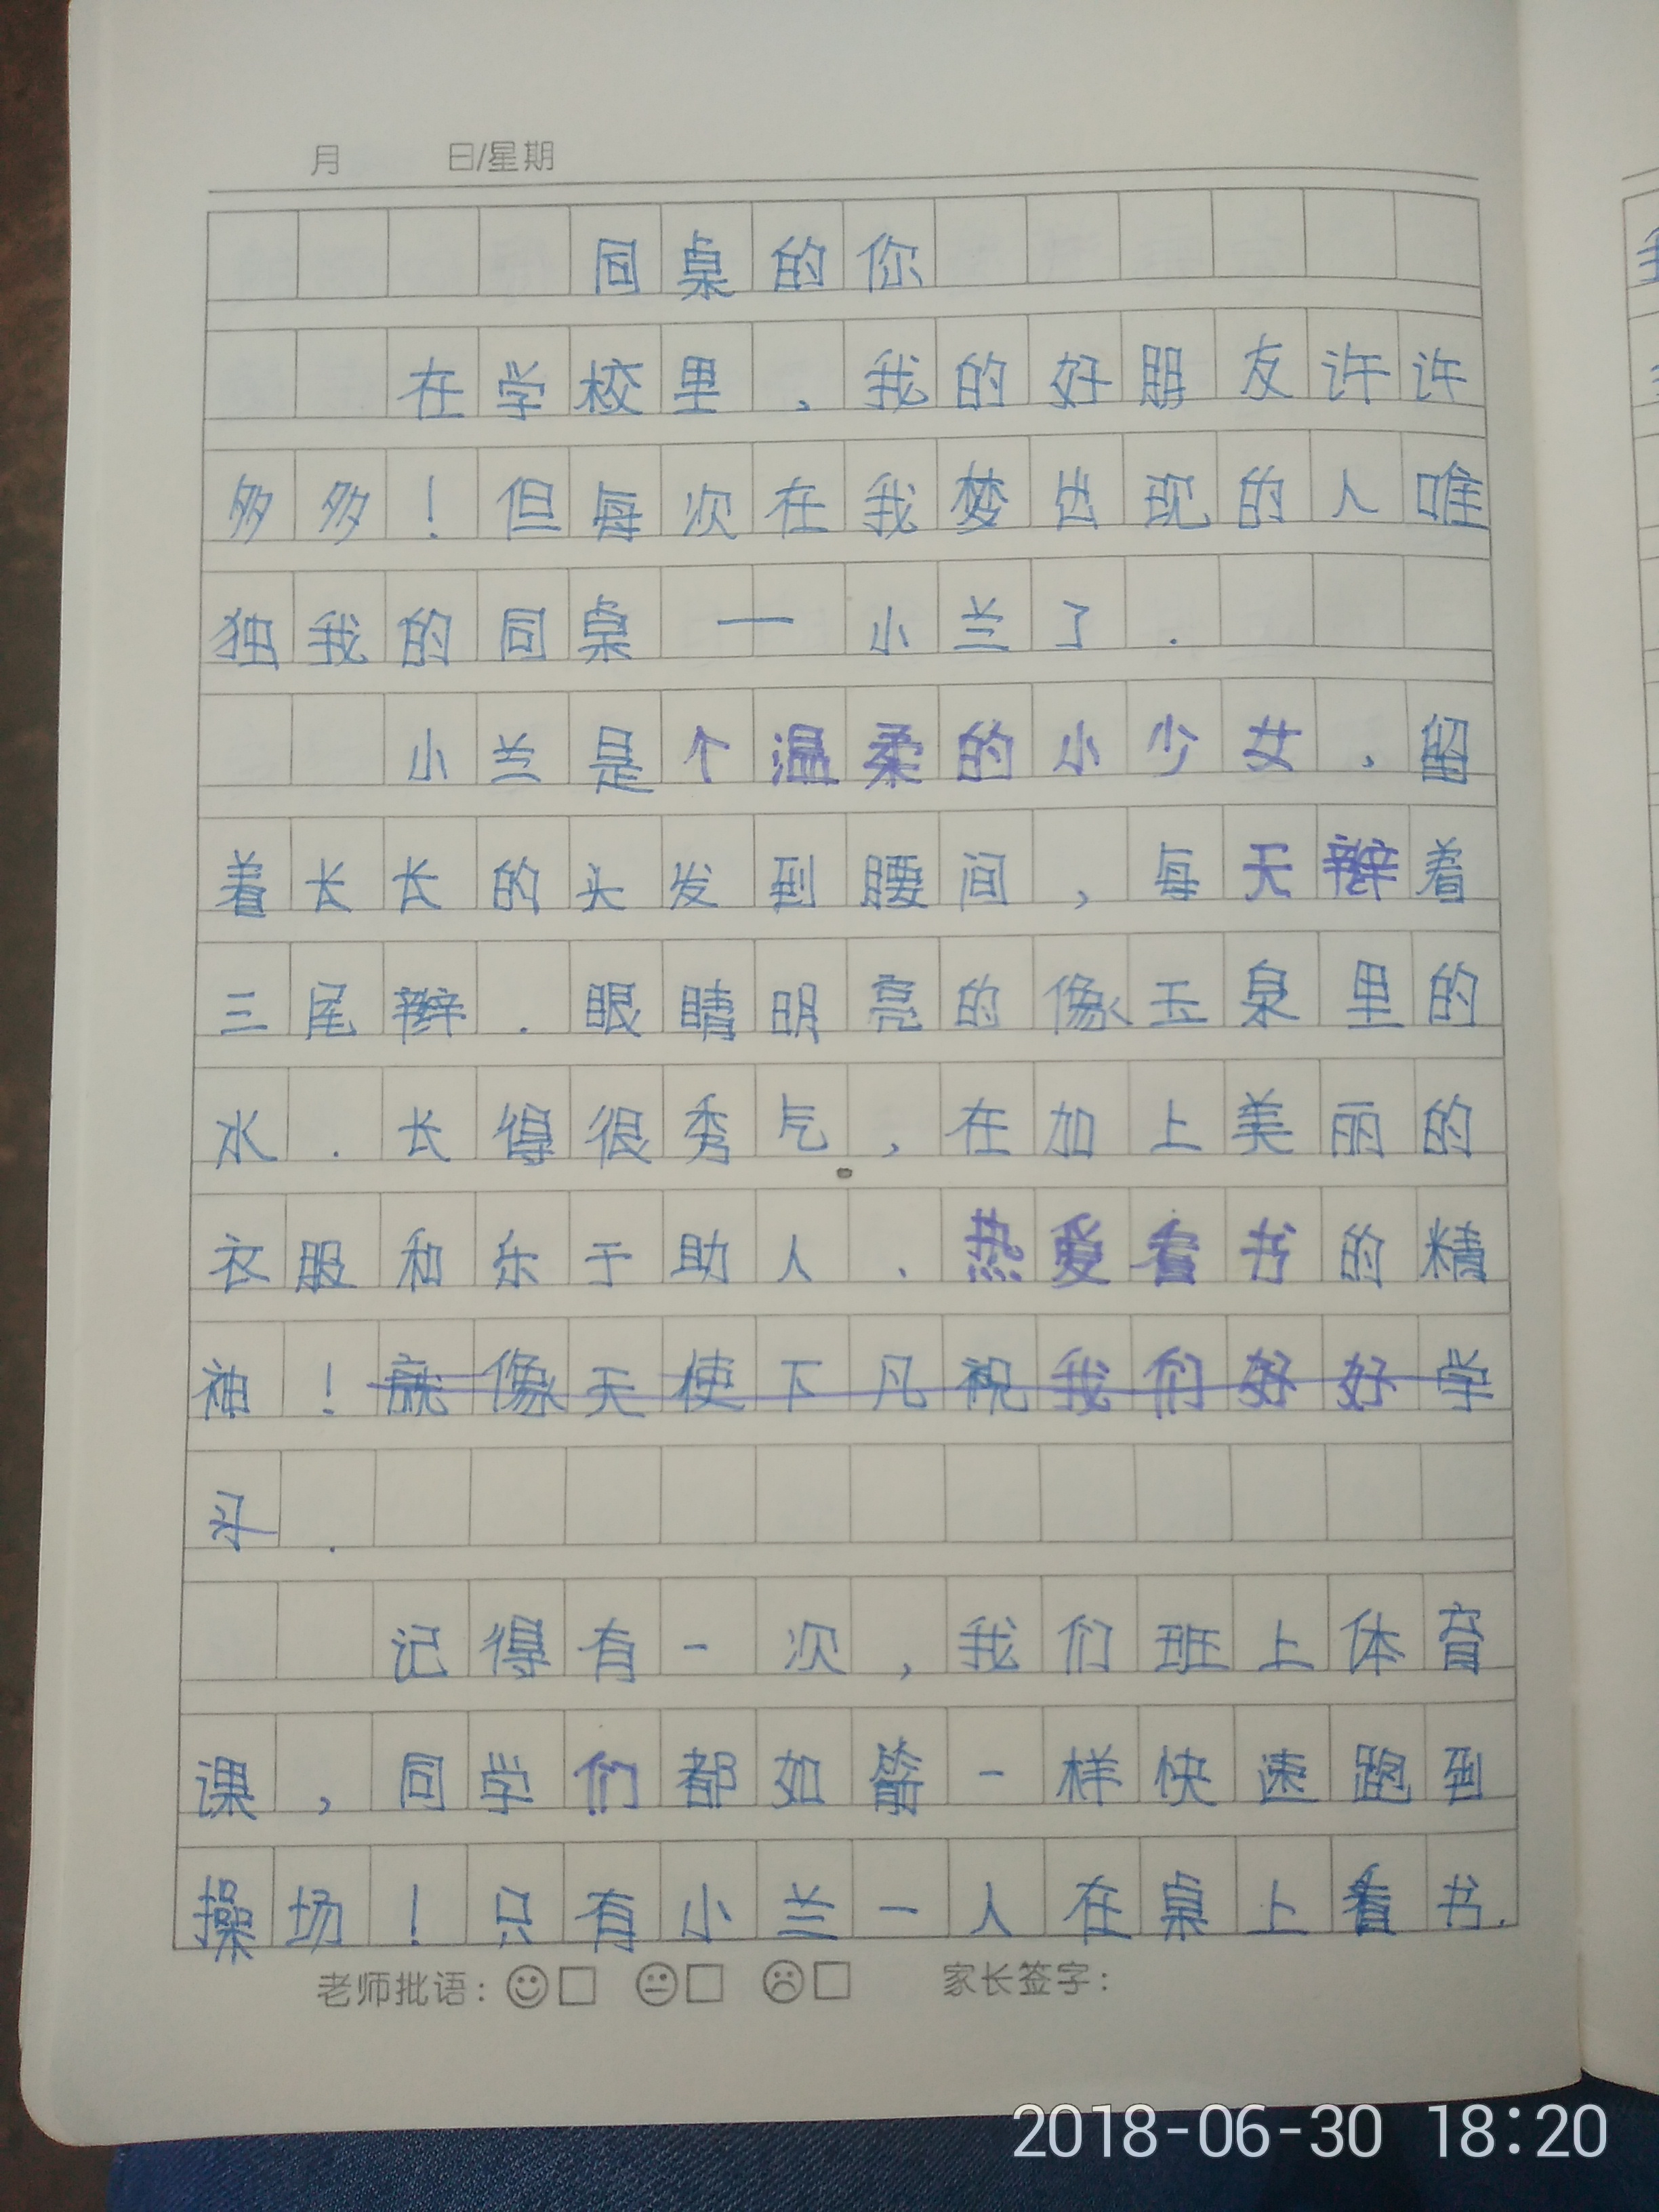 月 日/星期
同桌的你
在学校里，我的好朋友许许
多多！但每次在我梦出现的人唯
独我的同桌——小兰了.
小兰是个温柔的小少女，留
着长长的头发到腰间，每天辫着
三尾辫.眼睛明亮的像玉泉里的
水.长得很秀气，在加上美丽的
衣服和乐于助人、热爱看书的精
神！就像天使下凡祝我们好好学
习.
记得有一次，我们班上体育
课，同学们都如箭一样快速跑到
操场！只有小兰一人在桌上看书.
老师批语： 家长签字：
2018-06-30 18:20